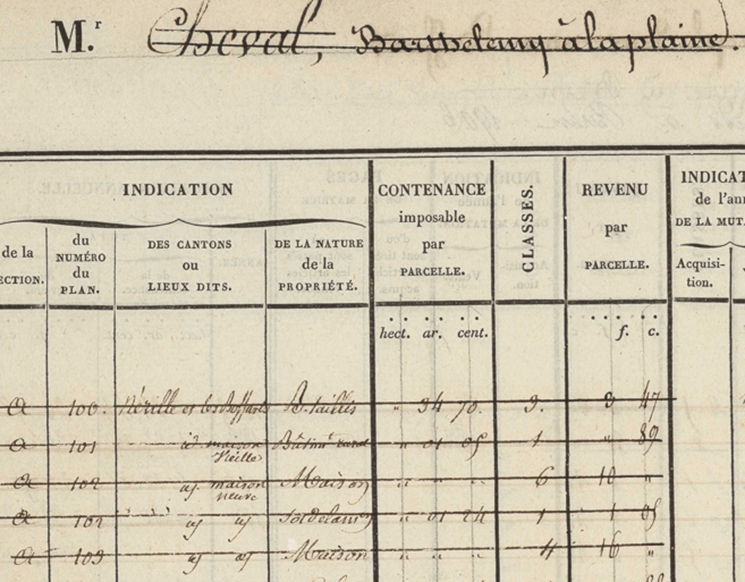 M.r Cheval, Barthelemy à la plaine.
INDICATION
de la
ECTION.
du
NUMÉRO
du
PLAN.
DES CANTONS
ou
LIEUX DITS.
DE LA NATURE
de la
PROPRIÉTÉ.
CONTENANCE
imposable
par
PARCELLE.
CLASSES.
REVENU
par
PARCELLE.
INDICAT
de l'ann
DE LA MUT
Acquisi-
tion.
hect. ar. cent. f. c.
a 100. et les B. taillis " 34 70. 3. 3 47
a 101 id maison Vieille " 01 05 1 " 89
a 102 id maison neuve Maison " " " 6 18 "
a 102 id id " 01 24 1 1 05
a 103 id id Maison " " " 4 16 "